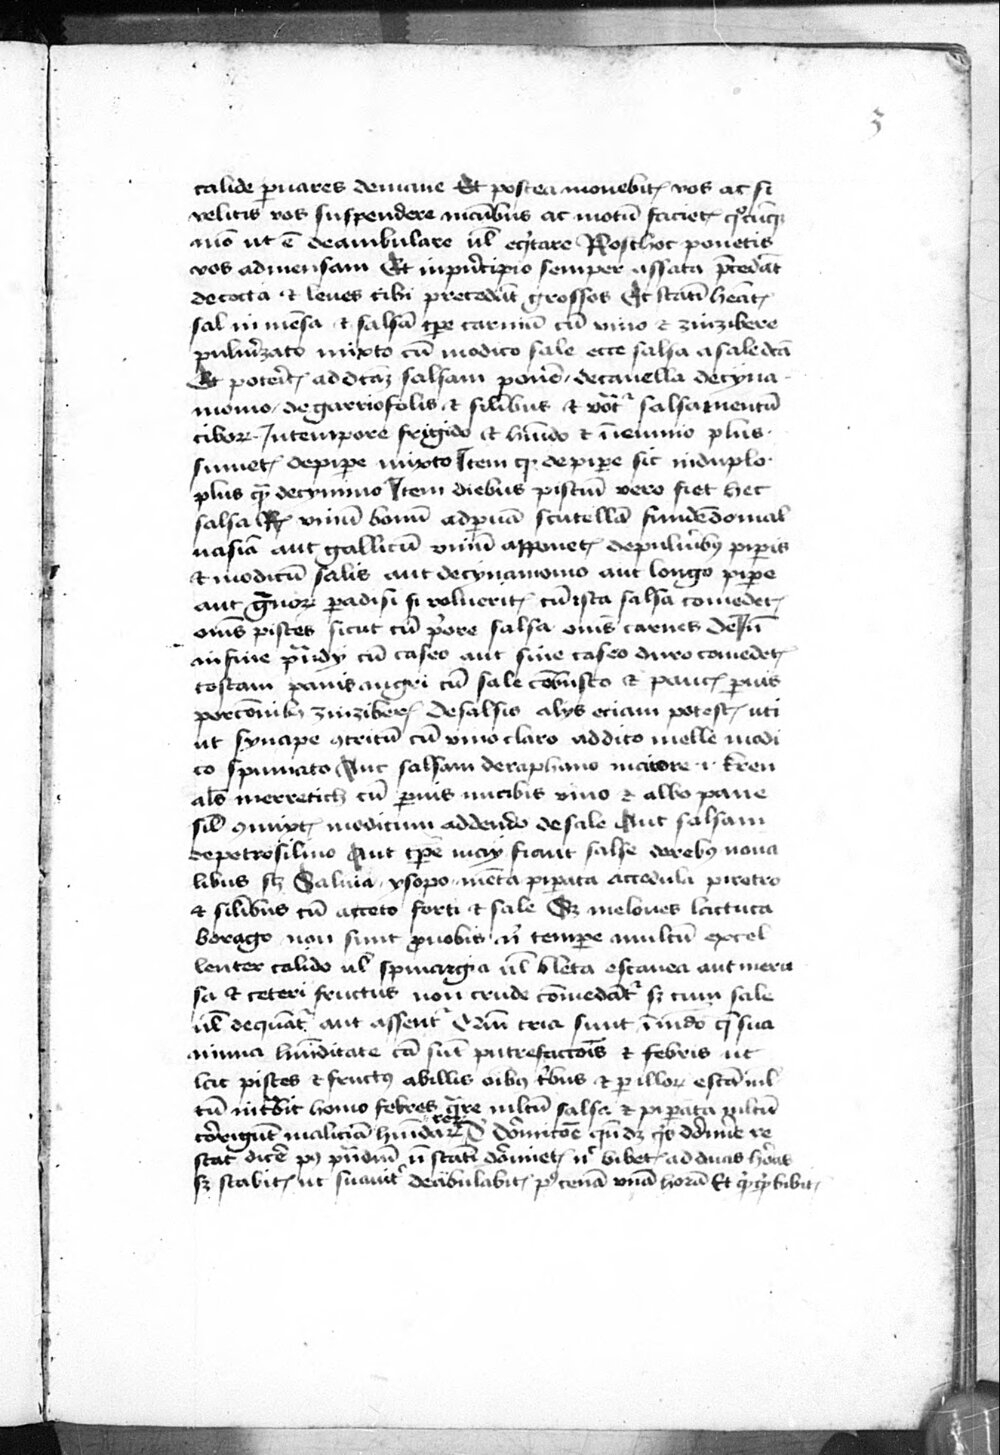 3
calide p̄uares demane Et postea monebit̄ vos ac si
velitis vos suspendere manibus ac motū faciet̄
aūo ut ē deambulare ul̄ eq̄tare Post hoc ponetis
vos ad mensam Et in p̄ncipio semper assata p̄cedāt
decocta et leues cibi precedāt grossos Et statī heāt̄
sal in mēsa et salsā tp̄e carniū cū vino et zinzibere
puluīzato mixto cū modico sale ecce salsa a sale dc̄a
Et poterit̄ ad dc̄aꝫ salsam ponē de canella de cyna
momo de garriofolis et silibus et salsamentū
ciboꝝ In tempore frigido et humido et ī yemmo plus
sumet̄ de pipe mixto Item qꝫ de pipe sic in duplo
plus qꝫ de cymino Item diebus pisciū vero fiet hec
salsa R̄ vinū bonū ad p̄uā scutellā de mal
uasia aut gallicū vinū apponet̄ de puluībꝰ pipis
et modicū salis aut de cynamomo aut longo pipe
aut g̃noꝝ padisi si voluerit̄ cū ista salsa comedet̄
om̄s pisces sicut cū p̄ore salsa om̄s carnes
in fine p̄ndij cū caseo aut sine caseo duro comedet̄
tostam panis nigri cū sale cōbusto et pauc̄ p̄uis
porcōnibꝰ zinziber̄ De salsis alijs eciam potest̄ uti
ut synape ꝯtritū cū vino claro addito melle modi
co spumato Aut salsam de raphano maiore i kren
al̄s merretich cū p̄uis nucibꝰ vino et albo pane
sil̄ ꝯmixt̄ modicum addendo de sale Aut salsam
de petrosilino Aut tp̄e maij fiant salse de rebꝰ noua
libus sꝫ Saluia ysopo mēta pip̄ata accedula piretro
et silibus cū aceto forti et sale Sꝫ melones lactuca
borago non sunt p̄ vobis n̄ tempe multū excel
lenter calido ul̄ spinargia ul̄ bleta escanea aut mera
sa et ceteri fructus non crude comedāt̄ sꝫ cum sale
ul̄ dequāt̄ aut assent̄ tria sunt ī mūdo q̄ sua
nimia humiditate cā sūt putrefaccōis et febris ut
lac pisces et fructꝰ ab illis oībꝰ t̄bus et p illoꝝ
tū incidit homo febres q̄re multū salsa et pip̄ata multū
corrigūt maliciā humidaꝝ reꝝ dormicōe re
stat dicē pꝰ p̄ndiū n̄ statī dormiet̄ n̄ bibet̄ ad duas horas
sꝫ stabit̄ ut suauit̄ deābulabit̄ pꝰ cenā vnā horā Et bibit̄